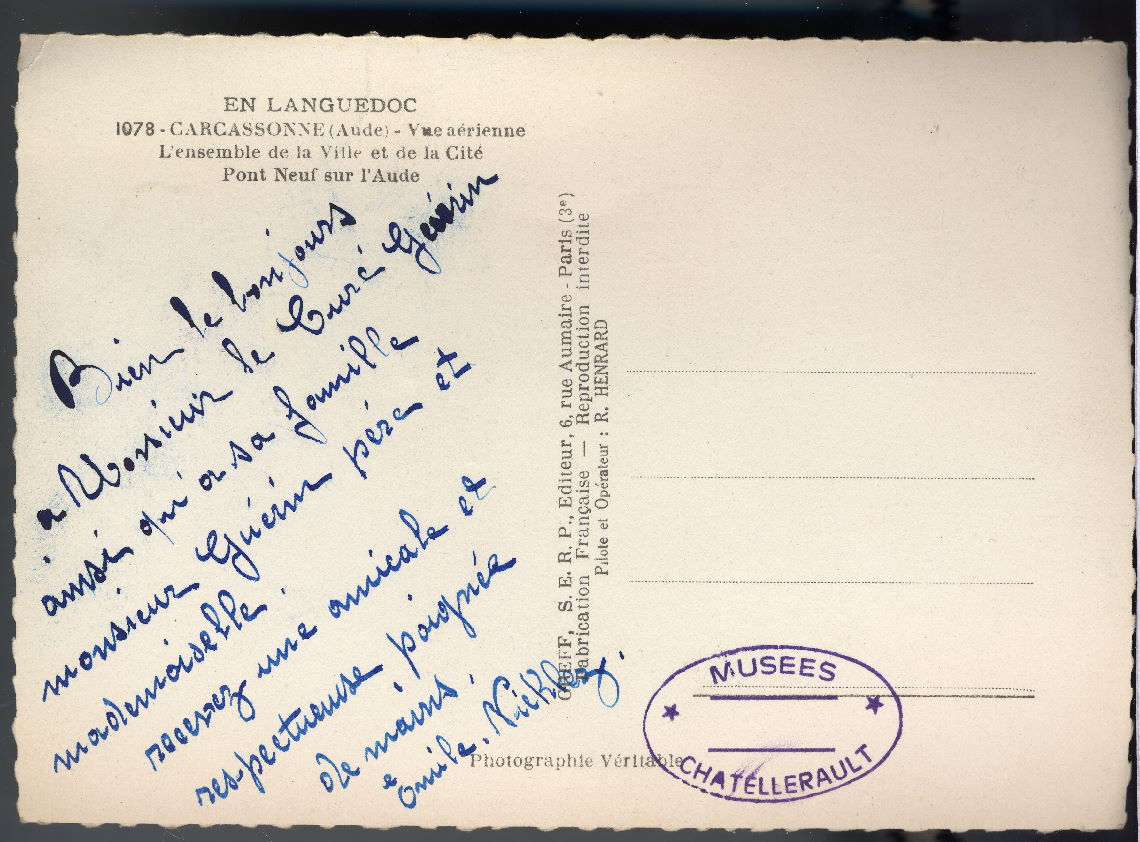 EN LANGUEDOC
1078 - CARCASSONNE (Aude) - Vue aérienne
L'ensemble de la Ville et de la Cité
Pont Neuf sur l'Aude
Bien le bonjours
a Monsieur le Curé Guérin
ainsi qu'a sa famille
monsieur Guérin père et
mademoiselle.
recevez une amicale et
respectueuse poignée
de mains.
Emile.
GREFF, S. E. R. P., Editeur, 6, rue Aumaire - Paris (3e)
Fabrication Française — Reproduction interdite
Pilote et Opérateur : R. HENRARD
Photographie Véritable
MUSEES
CHATELLERAULT